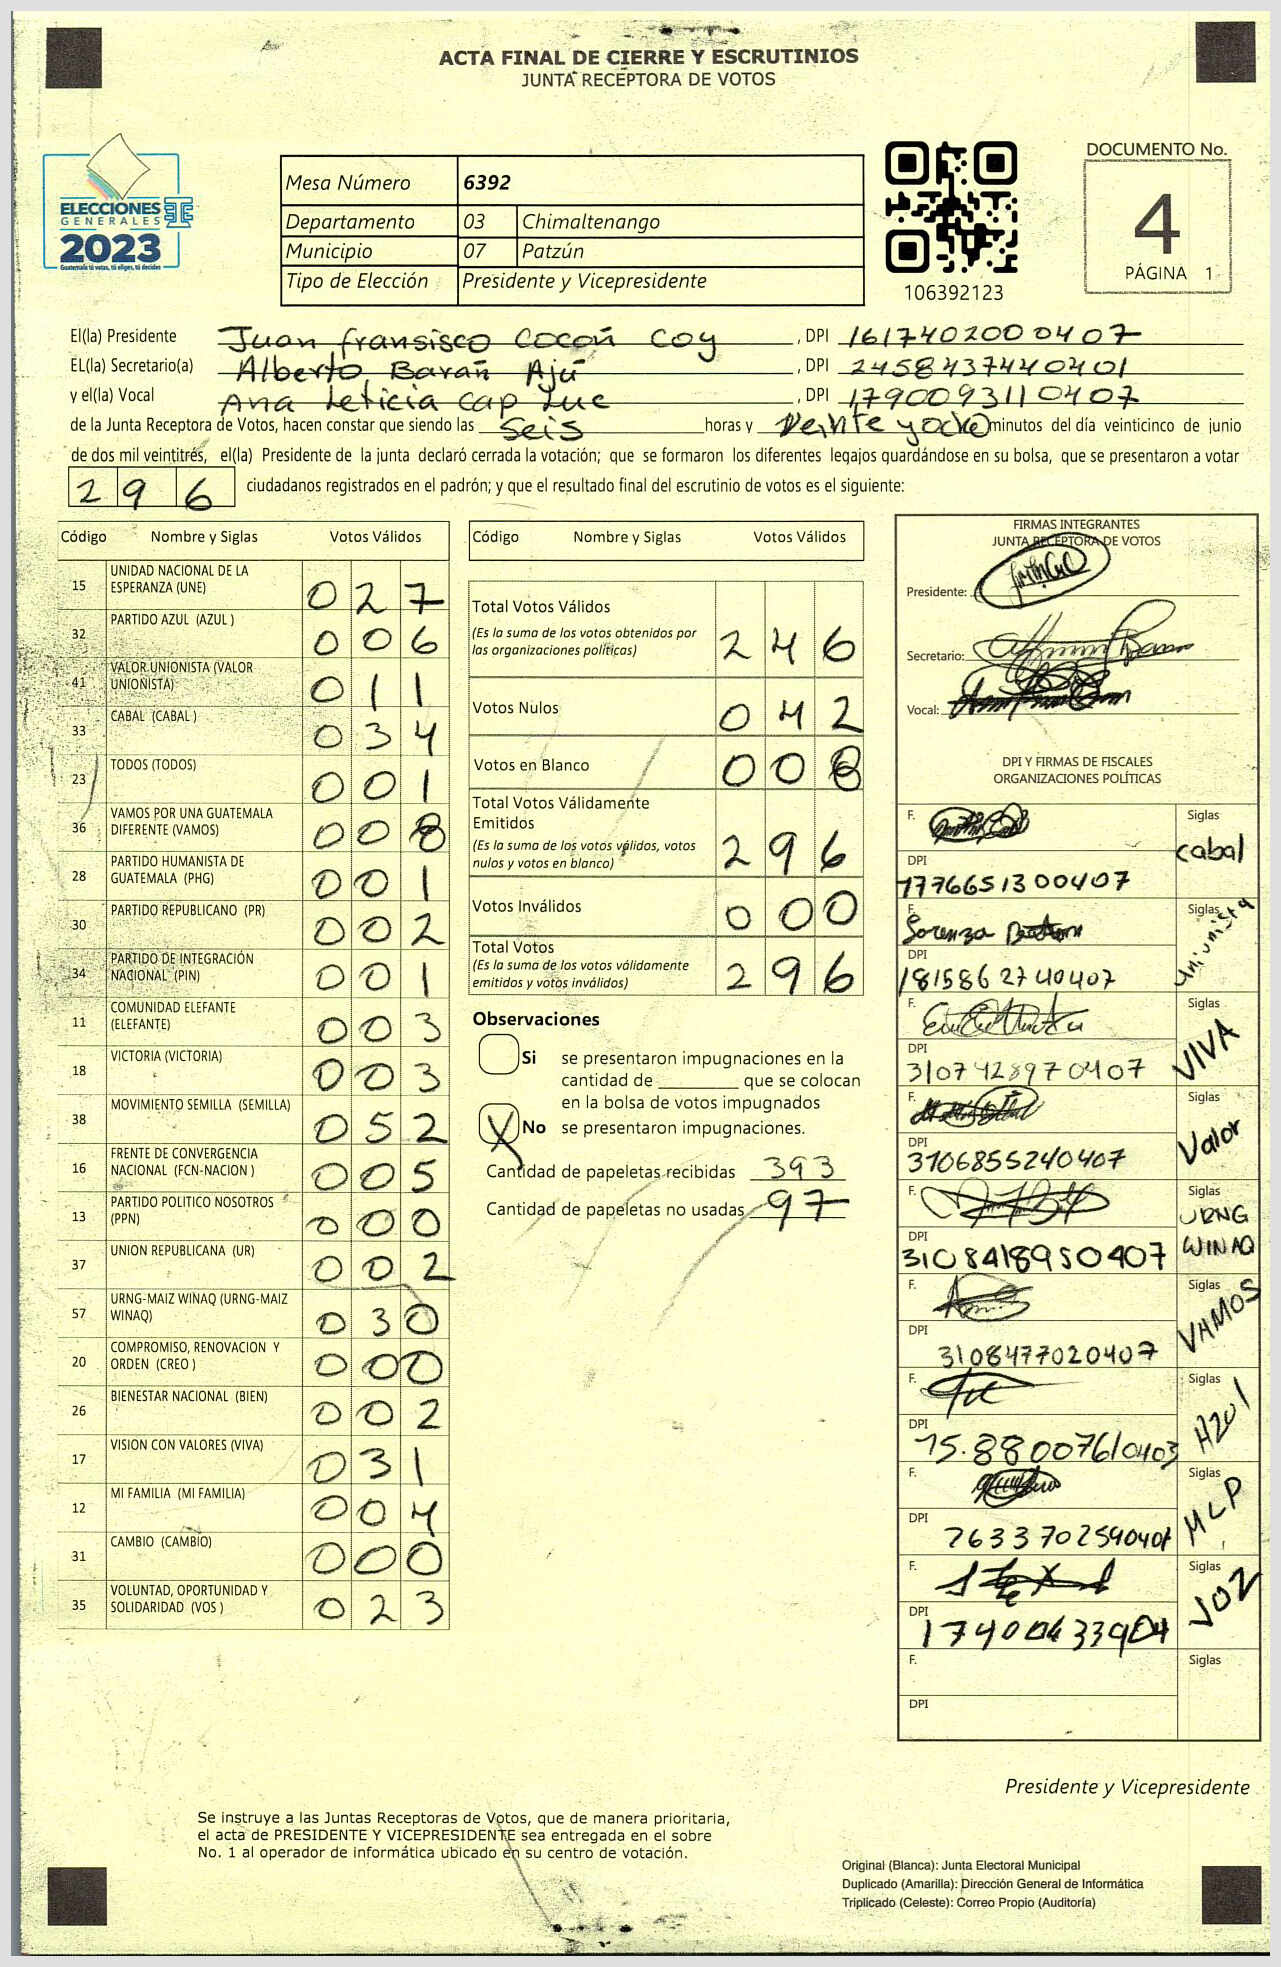 ACTA FINAL DE CIERRE Y ESCRUTINIOS
JUNTA RECEPTORA DE VOTOS
ELECCIONES
GENERALES
2023
Guatemala tú votas, tú eliges, tú decides
Mesa Número 6392
Departamento 03 Chimaltenango
Municipio 07 Patzún
Tipo de Elección Presidente y Vicepresidente
106392123
DOCUMENTO No.
4
PÁGINA 1
El(la) Presidente Juan fransisco Cocoñ Coy , DPI 1617402000407
EL(la) Secretario(a) Alberto Barañ Ajú , DPI 2458437440401
y el(la) Vocal Ana Leticia Cap Luc , DPI 1790093110407
de la Junta Receptora de Votos, hacen constar que siendo las seis horas y veinte y ocho minutos del día veinticinco de junio
de dos mil veintitrés, el(la) Presidente de la junta declaró cerrada la votación; que se formaron los diferentes legajos guardándose en su bolsa, que se presentaron a votar
296 ciudadanos registrados en el padrón; y que el resultado final del escrutinio de votos es el siguiente:
Código Nombre y Siglas Votos Válidos
15 UNIDAD NACIONAL DE LA ESPERANZA (UNE) 027
32 PARTIDO AZUL (AZUL ) 006
41 VALOR UNIONISTA (VALOR UNIONISTA) 011
33 CABAL (CABAL ) 034
23 TODOS (TODOS) 001
36 VAMOS POR UNA GUATEMALA DIFERENTE (VAMOS) 008
28 PARTIDO HUMANISTA DE GUATEMALA (PHG) 001
30 PARTIDO REPUBLICANO (PR) 002
34 PARTIDO DE INTEGRACIÓN NACIONAL (PIN) 001
11 COMUNIDAD ELEFANTE (ELEFANTE) 003
18 VICTORIA (VICTORIA) 003
38 MOVIMIENTO SEMILLA (SEMILLA) 052
16 FRENTE DE CONVERGENCIA NACIONAL (FCN-NACION ) 005
13 PARTIDO POLITICO NOSOTROS (PPN) 000
37 UNION REPUBLICANA (UR) 002
57 URNG-MAIZ WINAQ (URNG-MAIZ WINAQ) 030
20 COMPROMISO, RENOVACION Y ORDEN (CREO ) 000
26 BIENESTAR NACIONAL (BIEN) 002
17 VISION CON VALORES (VIVA) 031
12 MI FAMILIA (MI FAMILIA) 004
31 CAMBIO (CAMBIO) 000
35 VOLUNTAD, OPORTUNIDAD Y SOLIDARIDAD (VOS ) 023
Código Nombre y Siglas Votos Válidos
Total Votos Válidos 246
(Es la suma de los votos obtenidos por
las organizaciones políticas)
Votos Nulos 042
Votos en Blanco 008
Total Votos Válidamente
Emitidos 296
(Es la suma de los votos válidos, votos
nulos y votos en blanco)
Votos Inválidos 000
Total Votos 296
(Es la suma de los votos válidamente
emitidos y votos inválidos)
Observaciones
Si se presentaron impugnaciones en la
cantidad de ________ que se colocan
en la bolsa de votos impugnados
X No se presentaron impugnaciones.
Cantidad de papeletas recibidas 393
Cantidad de papeletas no usadas 97
FIRMAS INTEGRANTES
JUNTA RECEPTORA DE VOTOS
Presidente:
Secretario:
Vocal:
DPI Y FIRMAS DE FISCALES
ORGANIZACIONES POLÍTICAS
F. Siglas
cabal
DPI
1776651300407
F. Siglas
Lorenza
unionista
DPI
1815862740407
F. Siglas
VIVA
DPI
3107428970407
F. Siglas
Valor
DPI
3106855240407
F. Siglas
URNG
WINAQ
DPI
3108418950407
F. Siglas
VAMOS
DPI
3108477020407
F. Siglas
AZUl
DPI
15.88007610403
F. Siglas
MLP
DPI
2633702590401
F. Siglas
VOZ
DPI
F. Siglas
DPI
Presidente y Vicepresidente
Se instruye a las Juntas Receptoras de Votos, que de manera prioritaria,
el acta de PRESIDENTE Y VICEPRESIDENTE sea entregada en el sobre
No. 1 al operador de informática ubicado en su centro de votación.
Original (Blanca): Junta Electoral Municipal
Duplicado (Amarilla): Dirección General de Informática
Triplicado (Celeste): Correo Propio (Auditoría)